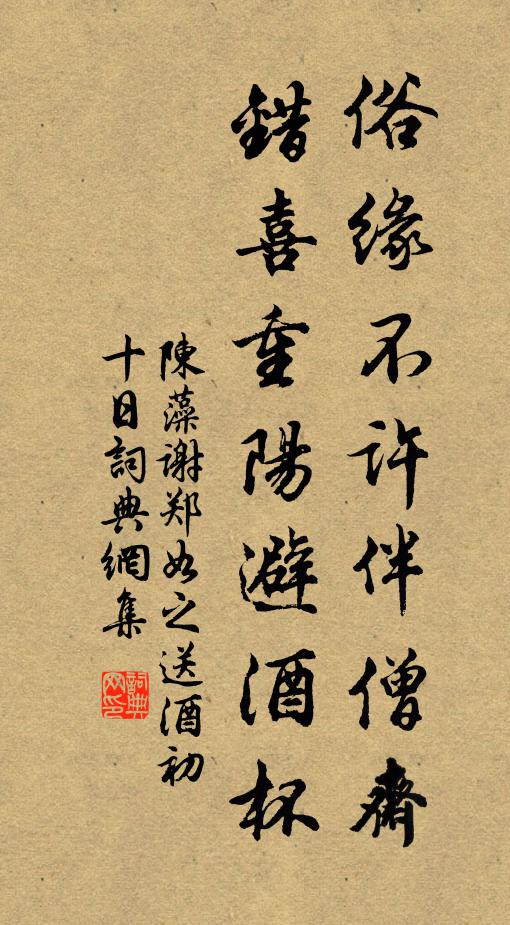 俗缘不许伴僧齋
錯喜重陽避酒杯
陳藻谢郑如之送酒初
十日詞典網集
詞典网印